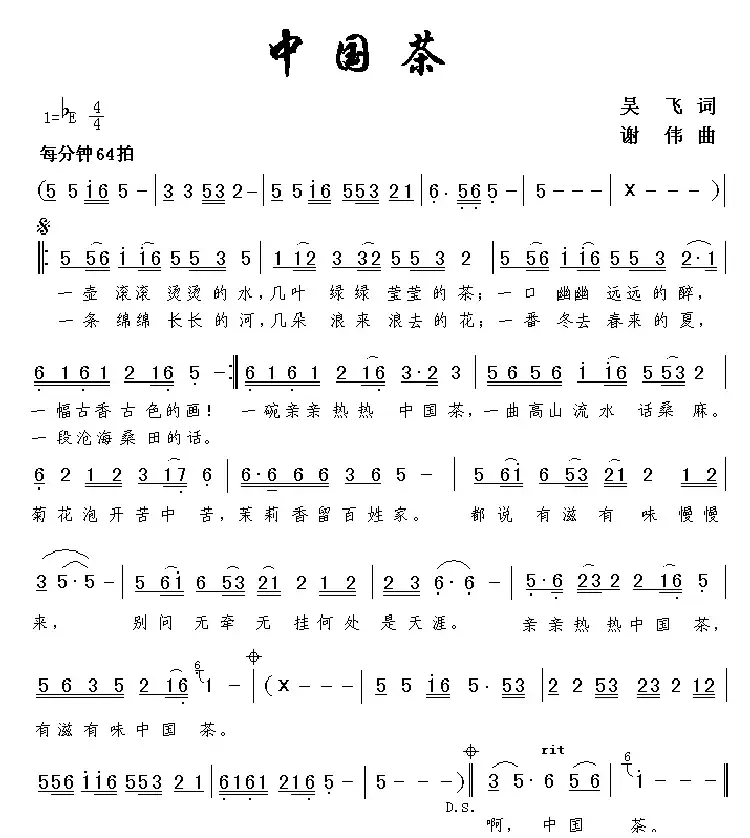 中国茶
1=♭E 4/4
吴 飞 词
谢 伟 曲
每分钟64拍
(5 5 i6 5 - | 3 3 53 2 - | 5 5 i6 553 21 | 6. 56 5 - | 5 - - - | X - - - )|
5 56 i i6 55 3 5 | 1 12 3 32 55 3 2 | 5 56 i i6 55 3 2·1 |
一壶 滚滚 烫烫的水,几叶 绿绿 莹莹的茶;一口 幽幽 远远的醉,
一条 绵绵 长长的河,几朵 浪来 浪去的花;一番 冬去 春来的夏,
6 161 2 16 5 - :‖ 6 161 2 16 3·2 3 | 5656 i i6 553 2 |
一幅古香古色的画! 一碗亲亲热热 中国茶,一曲高山流水 话桑 麻。
一段沧海桑田的话。
6 2 12 3 17 6 | 6·6 66 36 5 - | 5 6i 6 53 21 2 12 |
菊花泡开苦中 苦,茉莉香留百姓家。 都说 有滋有 味慢慢
3 5·5 - | 5 6i 6 53 21 2 12 | 2 3 6·6 - | 5·6 23 2 16 5 |
来, 别问 无牵无 挂何处 是天涯。 亲亲热热中国 茶,
5635 2 16 | 6 1 - | (X - - - | 5 5 i6 5. 53 | 2 23 53 23 2 12 |
有滋有味中国 茶。
556 ii6 553 21 | 6161 216 5 - | 5 - - - )‖ 3 5·6 56 | 6 i - ‖
rit
D.S.
啊, 中国 茶。